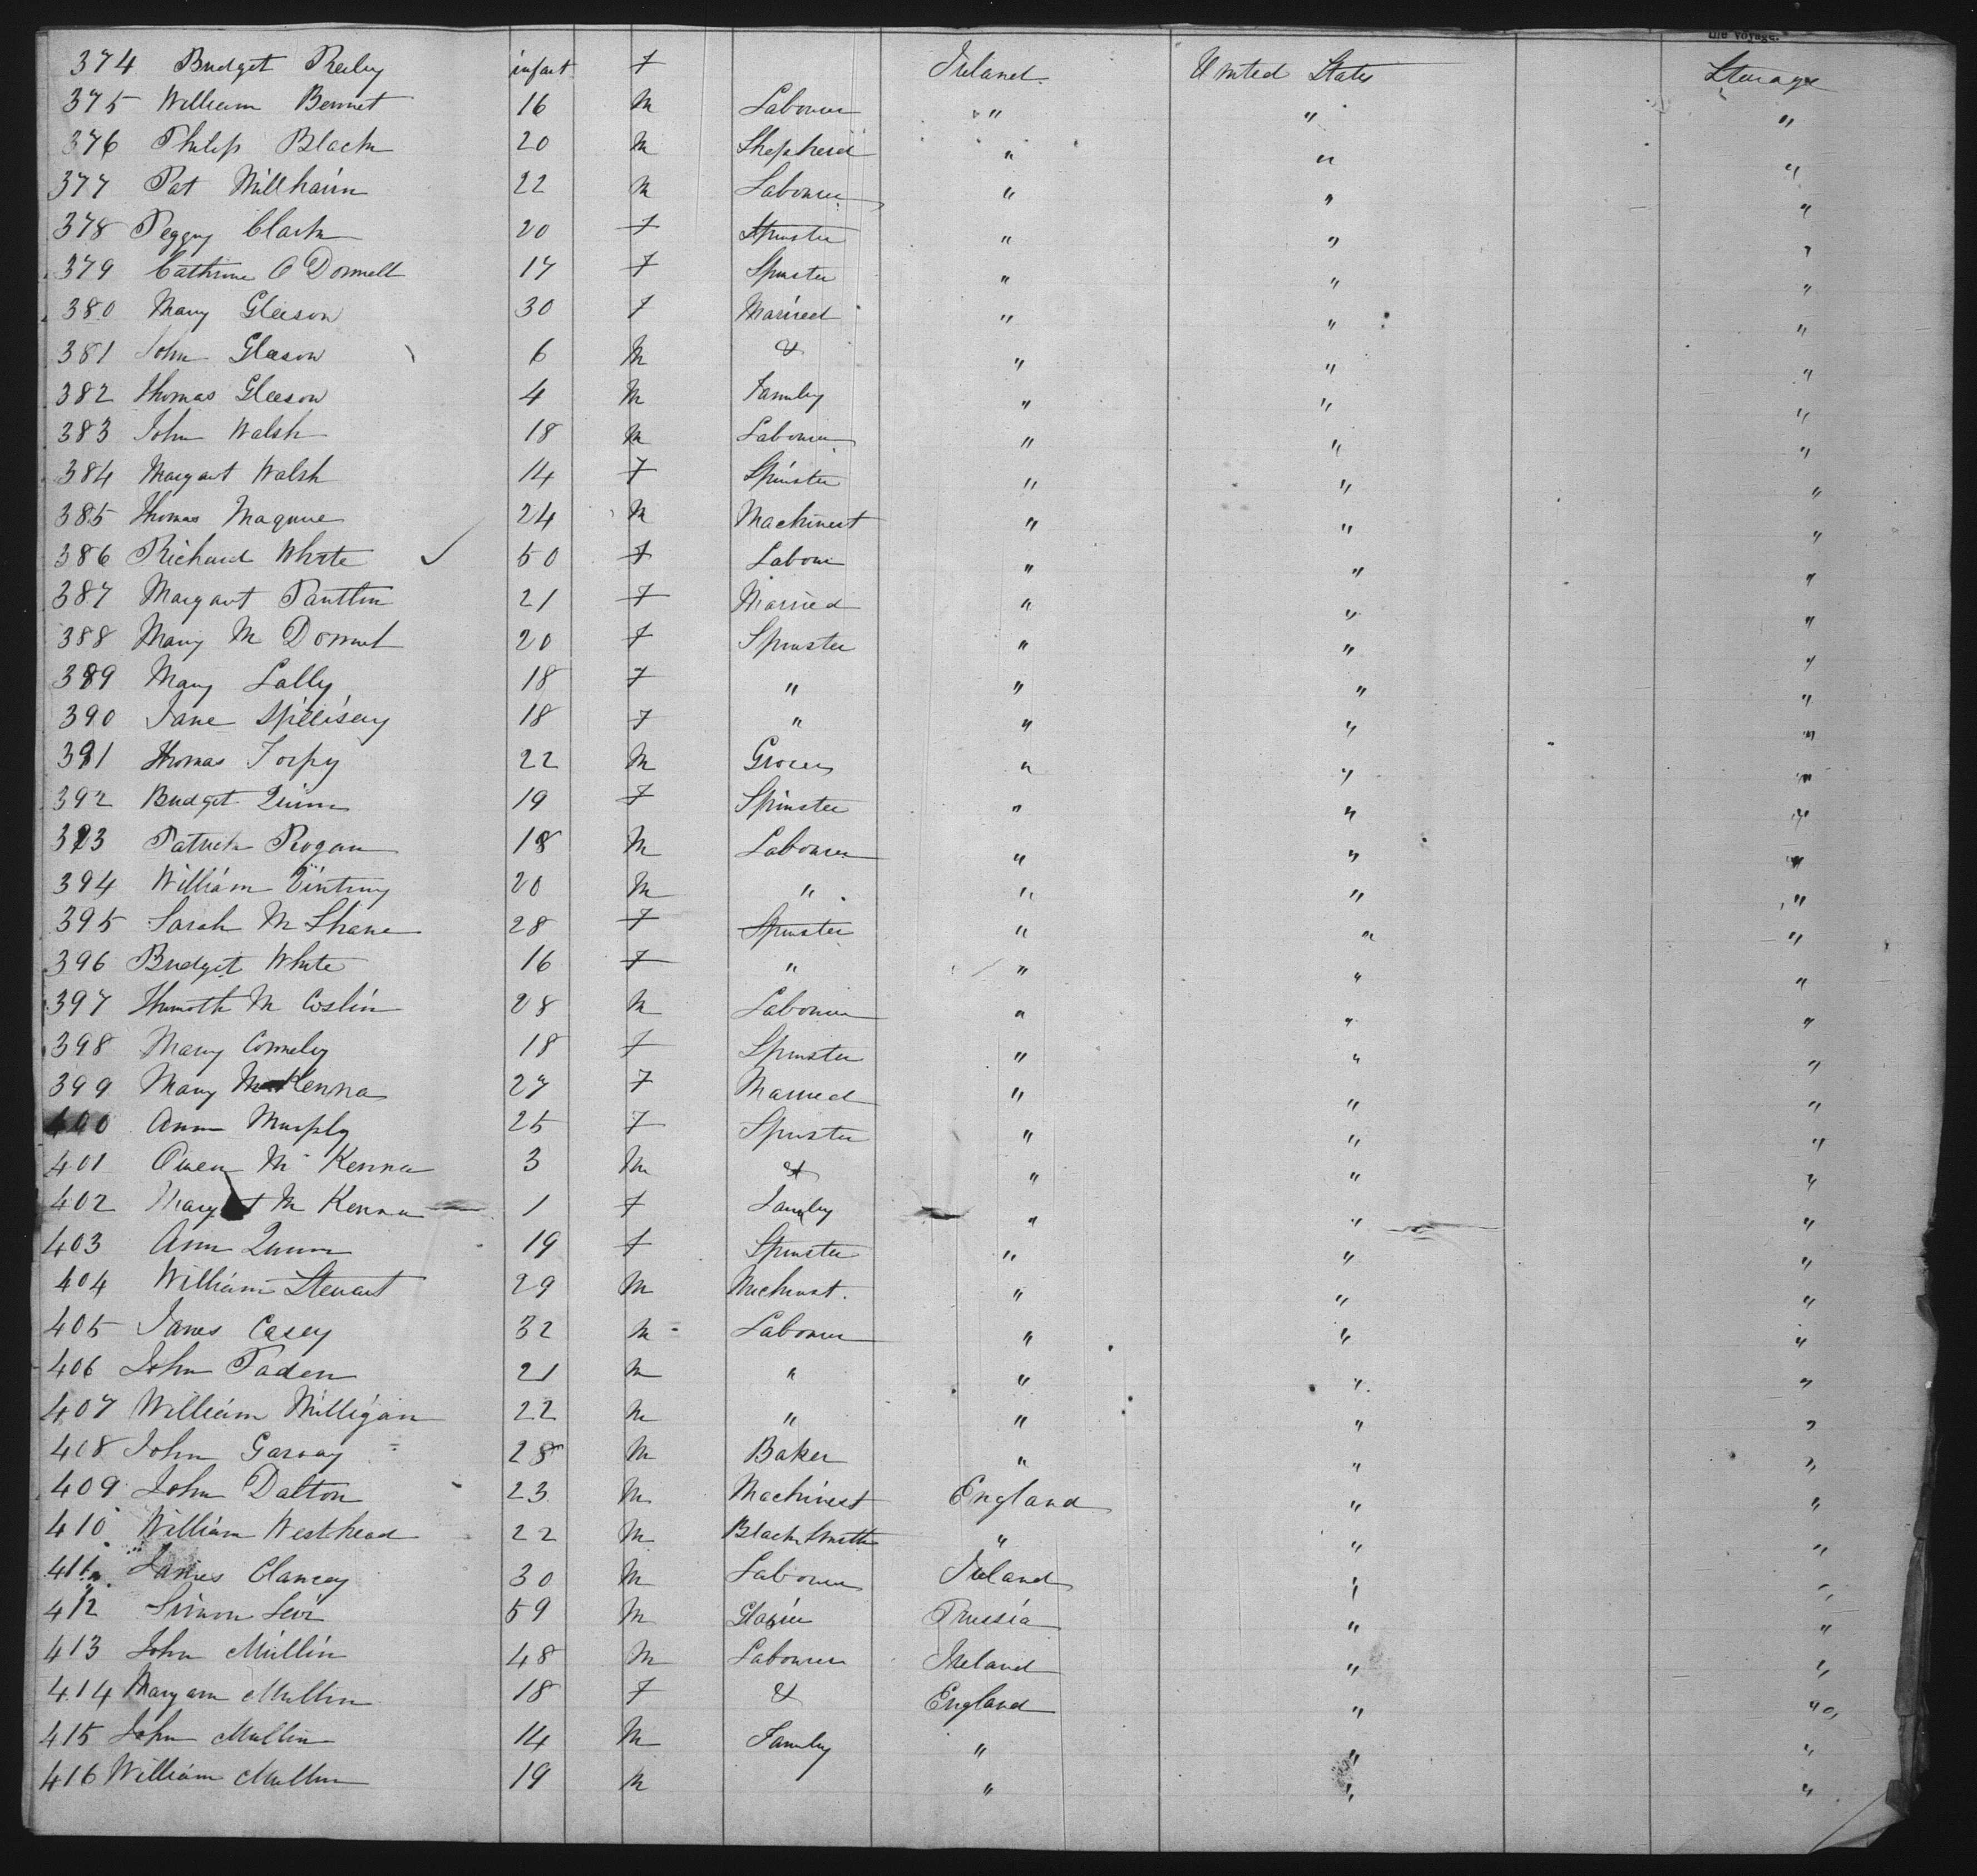 the voyage.
374 Bridget Reiley infant F Ireland United States Steerage
375 William Bennet 16 M Labourer " " "
376 Philip Black 20 M Shepherd " " "
377 Pat Millhairn 22 M Labourer " " "
378 Peggy Clark 20 F Spinster " " "
379 Cathrine O Donnell 17 F Spinster " " "
380 Mary Gleeson 30 F Married " " "
381 John Gleeson 6 M & " " "
382 Thomas Gleeson 4 M Family " " "
383 John Walsh 18 M Labourer " " "
384 Margaret Walsh 14 F Spinster " " "
385 Thomas Maguire 24 M Machinest " " "
386 Richard White 50 F Labour " " "
387 Margaret 21 F Married " " "
388 Mary M Donnel 20 F Spinster " " "
389 Mary Lally 18 F " " " "
390 Jane 18 F " " " "
391 Thomas Torpy 22 M Grocer " " "
392 Bridget Quinn 19 F Spinster " " "
393 Patrick Rogan 18 M Labourer " " "
394 William 20 M " " " "
395 Sarah M Shane 28 F Spinster " " "
396 Bridget White 16 F " " " "
397 M Coslin 28 M Labourer " " "
398 Mary Conneley 18 F Spinster " " "
399 Mary McKenna 27 F Married " " "
400 Ann Murphy 25 F Spinster " " "
401 Owen Mc Kenna 3 M & " " "
402 Margret M Kenna 1 F Family " " "
403 Ann Quinn 19 F Spinster " " "
404 William Steuart 29 M Mechinist. " " "
405 James Casey 32 M Labourer " " "
406 John Faden 21 M " " " "
407 William Milligan 22 M " " " "
408 John Garvay 28 M Baker " " "
409 John Dalton 23 M Machinest England " "
410 William Westhead 22 M Black Smith " " "
411 James Clancey 30 M Labourer Ireland " "
412 Simon Levi 59 M Glazier Prussia " "
413 John Mullin 48 M Labourer Ireland " "
414 Maryann Mullin 18 F & England " "
415 John Mullin 14 M Family " " "
416 William Mullin 19 M " " "